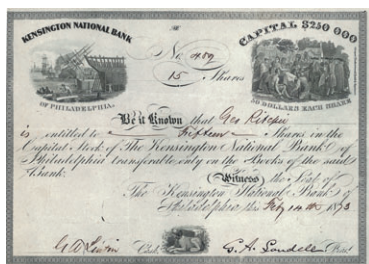 KENSINGTON NATIONAL BANK
OF PHILADELPHIA.
No. 489
15 Shares
CAPITAL $250 000
50 DOLLARS EACH SHARE
Be it Known that Geo
is entitled to fifteen Shares in the
Capital Stock of The Kensington National Bank of
Philadelphia transferable only on the Books of the said
Bank.
Witness the Seal of
The Kensington National Bank of
Philadelphia this Feby 14th 1873
Cash
G. A. Landell Prest